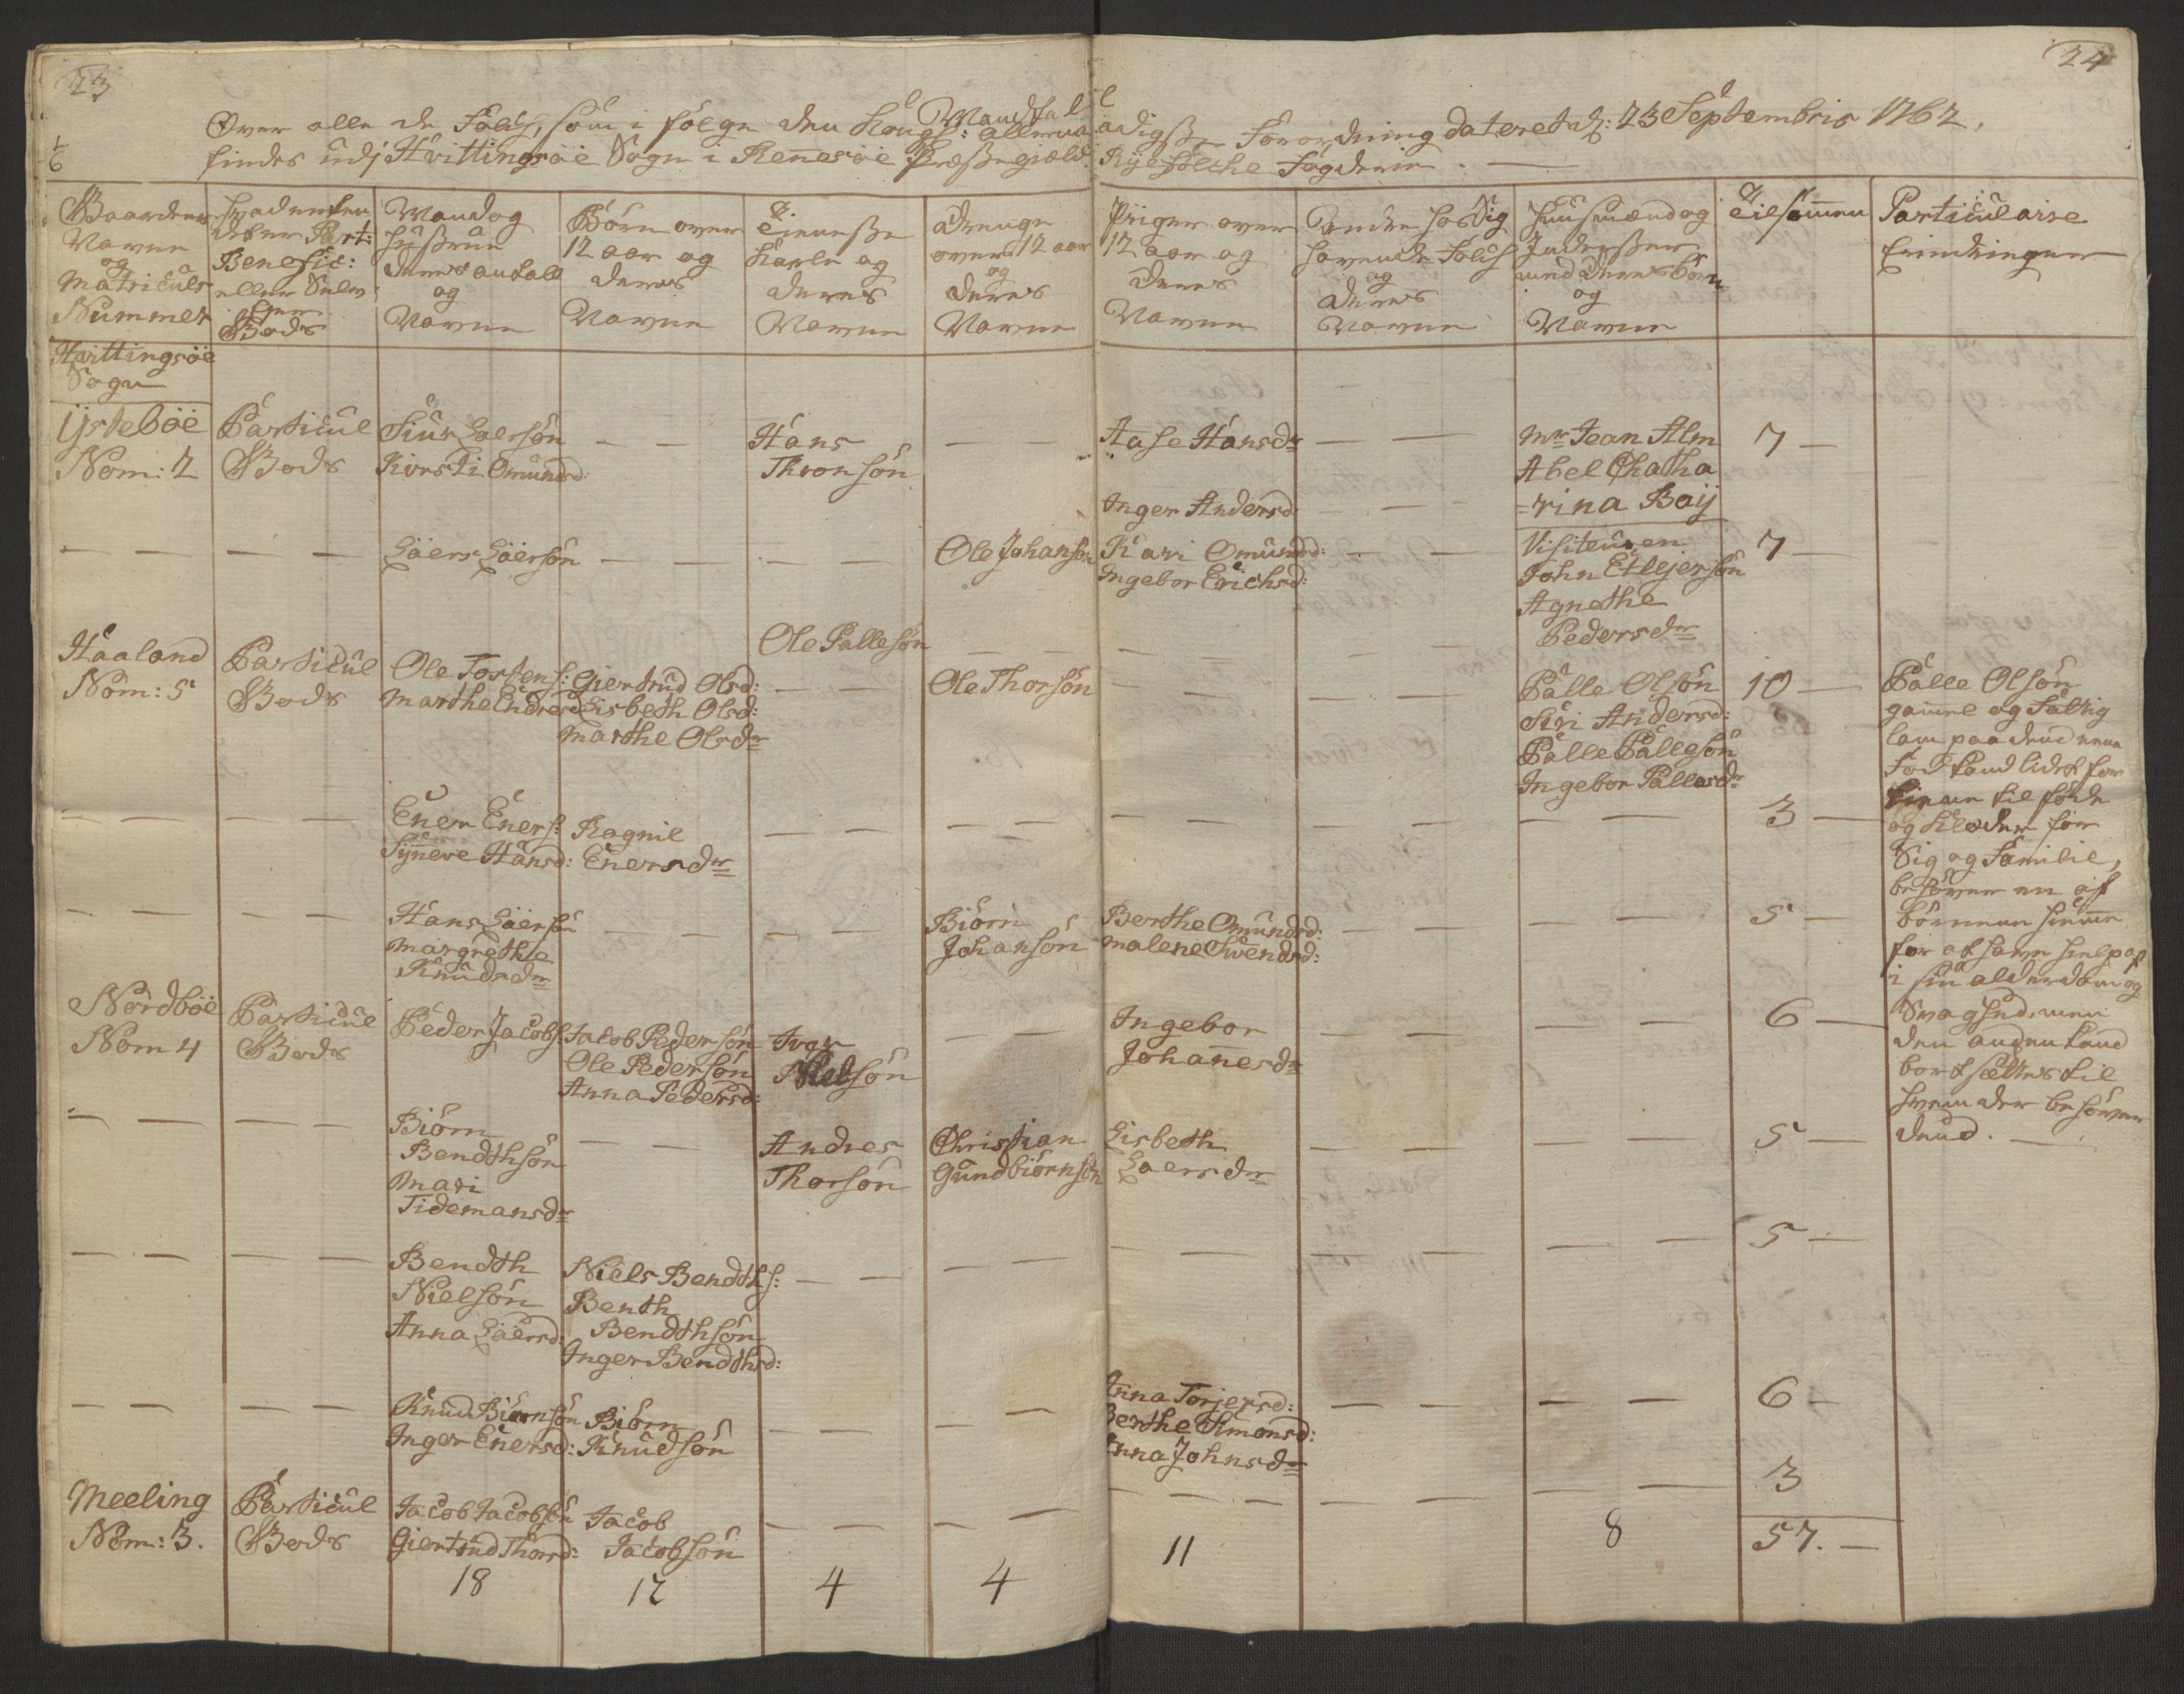 23
24
Mandtal
Over alle de Folch, som i følge den Kongl: allernaadigste Forordning dateret d: 23 Septembris 1762,
findes udj Hvittingsöe Sogn i Rennesöe Præstegield Ryefölche Fogderie.
Gaardenes
Navne
og
Matriculs
Nummer
hvad enten
det er Part:
Benefic:
eller Selv
Eyer
Gods
Mand og
Hustrue
deres antall
og
Navne
Börn over
12 aar og
deres
Navne
Tieneste
Karle og
deres
Navne
Drenge
over 12 aar
og
deres
Navne
Piiger over
12 aar og
deres
Navne
Andre hos Sig
havende Folch
og
deres
Navne
Huusmænd og
Inderster
med deres börn
og
Navne
Tilsammen
Particulaire
Erindringer
Hvittingsöe
Sogn
Ysteböe
Nom: 2
Particul
Gods
Siur Laersön
Kirsti Omundsd:
— —
Hans
Thronsön
— —
Aase Hansdr
Inger Andersd:
— —
Mr Jean Alm
Abel Chatha
=rina Baij
7 —
— —
— —
Laers Laersön
— —
— —
Ole Johanson
Kari Omundsd:
Ingebor Erichsd:
— —
Visiteuren
John Etlejersön
Agnethe
Pedersdr
7 —
Haaland
Nom: 5
Particul
Gods
Ole Torstens:
Marthe Endresd:
Giertrud Olsd:
Lisbeth Olsd:
Marthe Olsdr
Ole Pallesön
— —
Ole Thorsön
— —
— —
Palle Olsön
Siri Andersd:
Palle Pallesön
Ingebor Pallesdr
10 —
Palle Olsön
gamel og Fattig
lam paa den eene
Fod
og Klæder for
Sig og Familie,
behöver en af
börnene hieme
for at have hielp af
i sin alderdom og
Svaghed, men
den anden kand
bortsættes til
hvem der behöver
dend. —
— —
— —
Ener Eners:
Syneve Hansd:
Ragnil
Enersdr
— —
— —
— —
— —
— —
3 —
— —
— —
Hans Laersön
Margrethe
Knudsdr
— —
— —
Biörn
Johansön
Berthe Omundsd:
Malene Svendsd:
— —
— —
5 —
Nordböe
Nom 4
Particul
Gods
Peder Jacobs:
Jacob Pedersön
Ole Pedersön
Anna Pedersd:
Iver
Nielsön
— —
Ingebor
Johanesdr
— —
— —
6 —
— —
— —
Biörn
Bendthsön
Mari
Tidemansdr
— —
Andres
Thorsön
Christian
Gundbiörnsön
Lisbeth
Laersdr
— —
— —
5 —
— —
— —
Bendth
Nielsön
Anna Laersd:
Niels Bendths:
Benth
Bendthsön
Inger Bendthsd:
— —
— —
— —
— —
— —
5 —
— —
— —
Knud Biörnsön
Inger Enersd:
Biörn
Knudsön
— —
— —
Anna Torjersd:
Berthe Simonsd:
Anna Johnsdr
— —
— —
6 —
Meeling
Nom: 3.
Particul
Gods
Jacob Jacobsön
Giertrud Thorsd:
Jacob
Jacobsön
— —
— —
— —
— —
— —
3
18
12
4
4
11
8
57. —